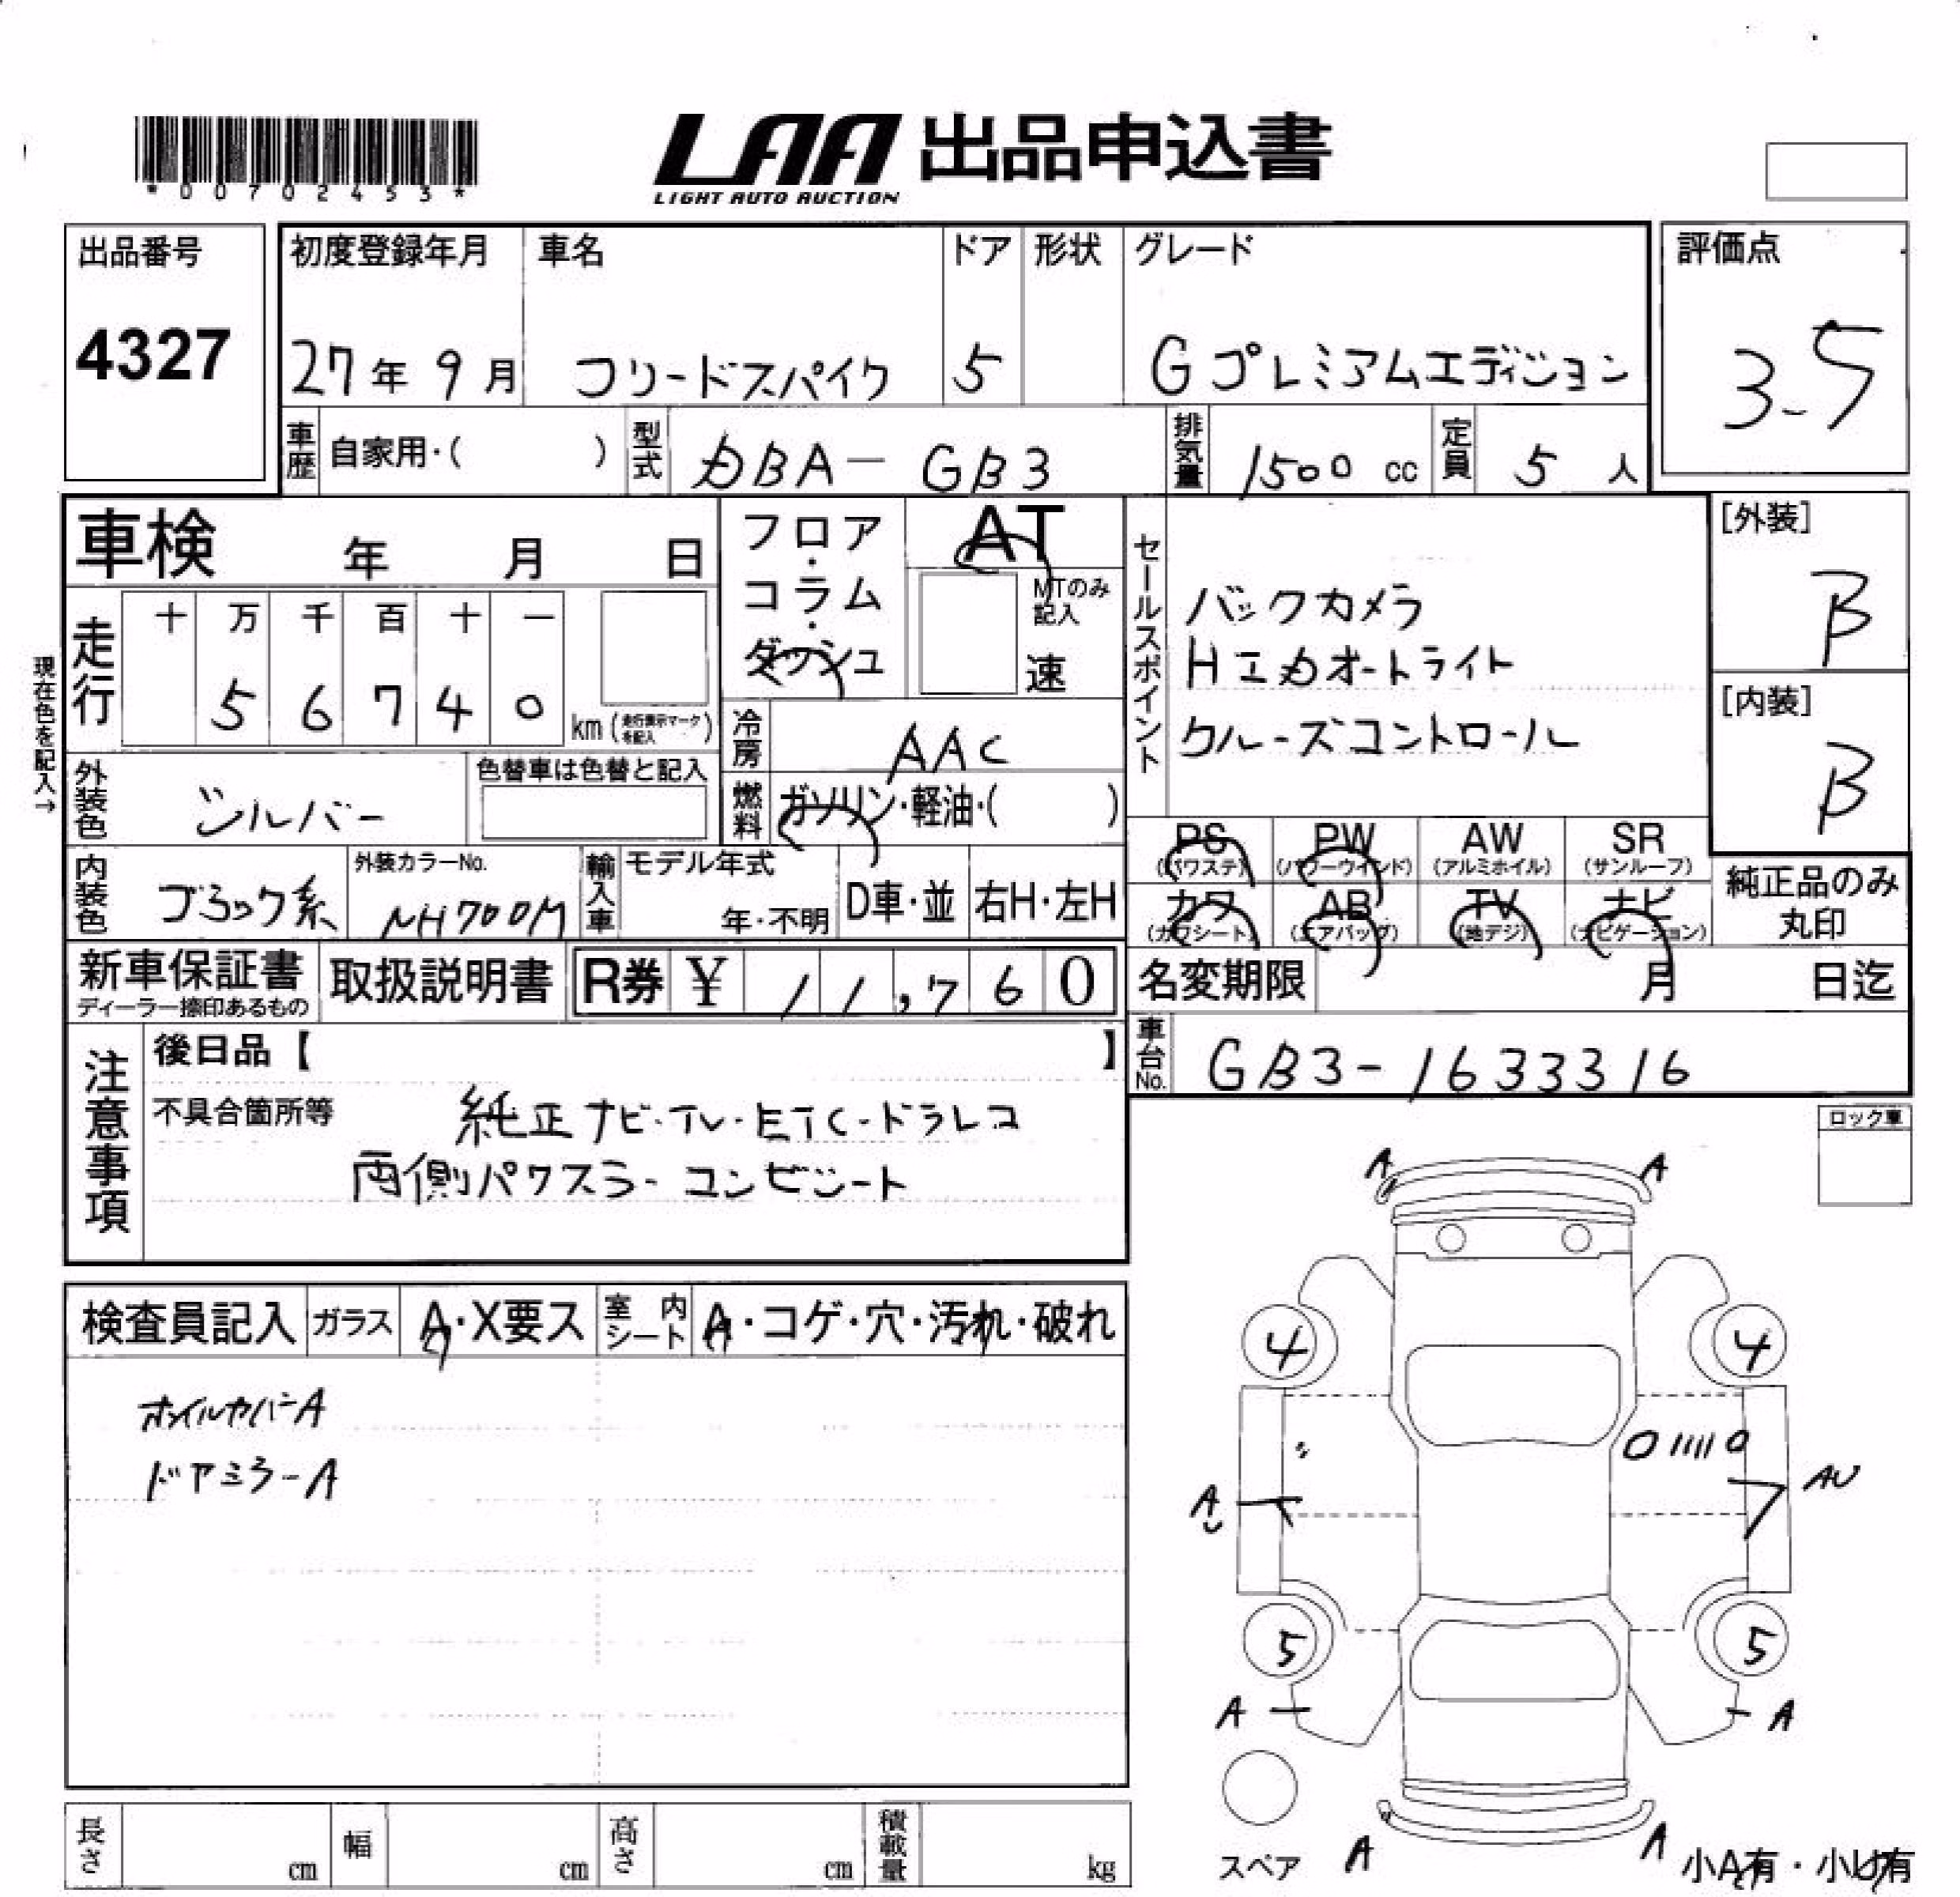 *00702453*
LAA 出品申込書
LIGHT AUTO AUCTION
出品番号
4327
初度登録年月
27年 9月
車名
フリードスパイク
ドア
5
形状
グレード
Gプレミアムエディション
評価点
3.5
車歴 自家用・( )
型式 DBA-GB3
排気量 1500 cc
定員 5 人
車検 年 月 日
フロア・コラム・ダッシュ
AT
MTのみ記入
速
セールスポイント
バックカメラ
HIDオートライト
クルーズコントロール
[外装]
B
[内装]
B
現在色を記入→
走行
十 万 千 百 十 一
5 6 7 4 0
km (走行表示マークを記入)
冷房 AAC
燃料 ガソリン・軽油・( )
外装色 シルバー
色替車は色替と記入
内装色 ブラック系
外装カラーNo.
NH700M
輸入車
モデル年式
年・不明
D車・並
右H・左H
PS (パワステ)
PW (パワーウインド)
AW (アルミホイル)
SR (サンルーフ)
カワ (カワシート)
AB (エアバッグ)
TV (地デジ)
ナビ (ナビゲーション)
純正品のみ
丸印
新車保証書
ディーラー捺印あるもの
取扱説明書
R券 ¥ 11,760
名変期限 月 日迄
車台No. GB3-1633316
注意事項
後日品【 】
不具合箇所等
純正ナビ・TV・ETC・ドラレコ
両側パワスラ・コンビシート
ロック車
検査員記入
ガラス A・X要ス
室内シート A・コゲ・穴・汚れ・破れ
ホイルカバーA
ドアミラーA
A A
4 4
AU
A
5 5
A A
スペア
A A
小A有・小U有
長さ cm
幅 cm
高さ cm
積載量 kg